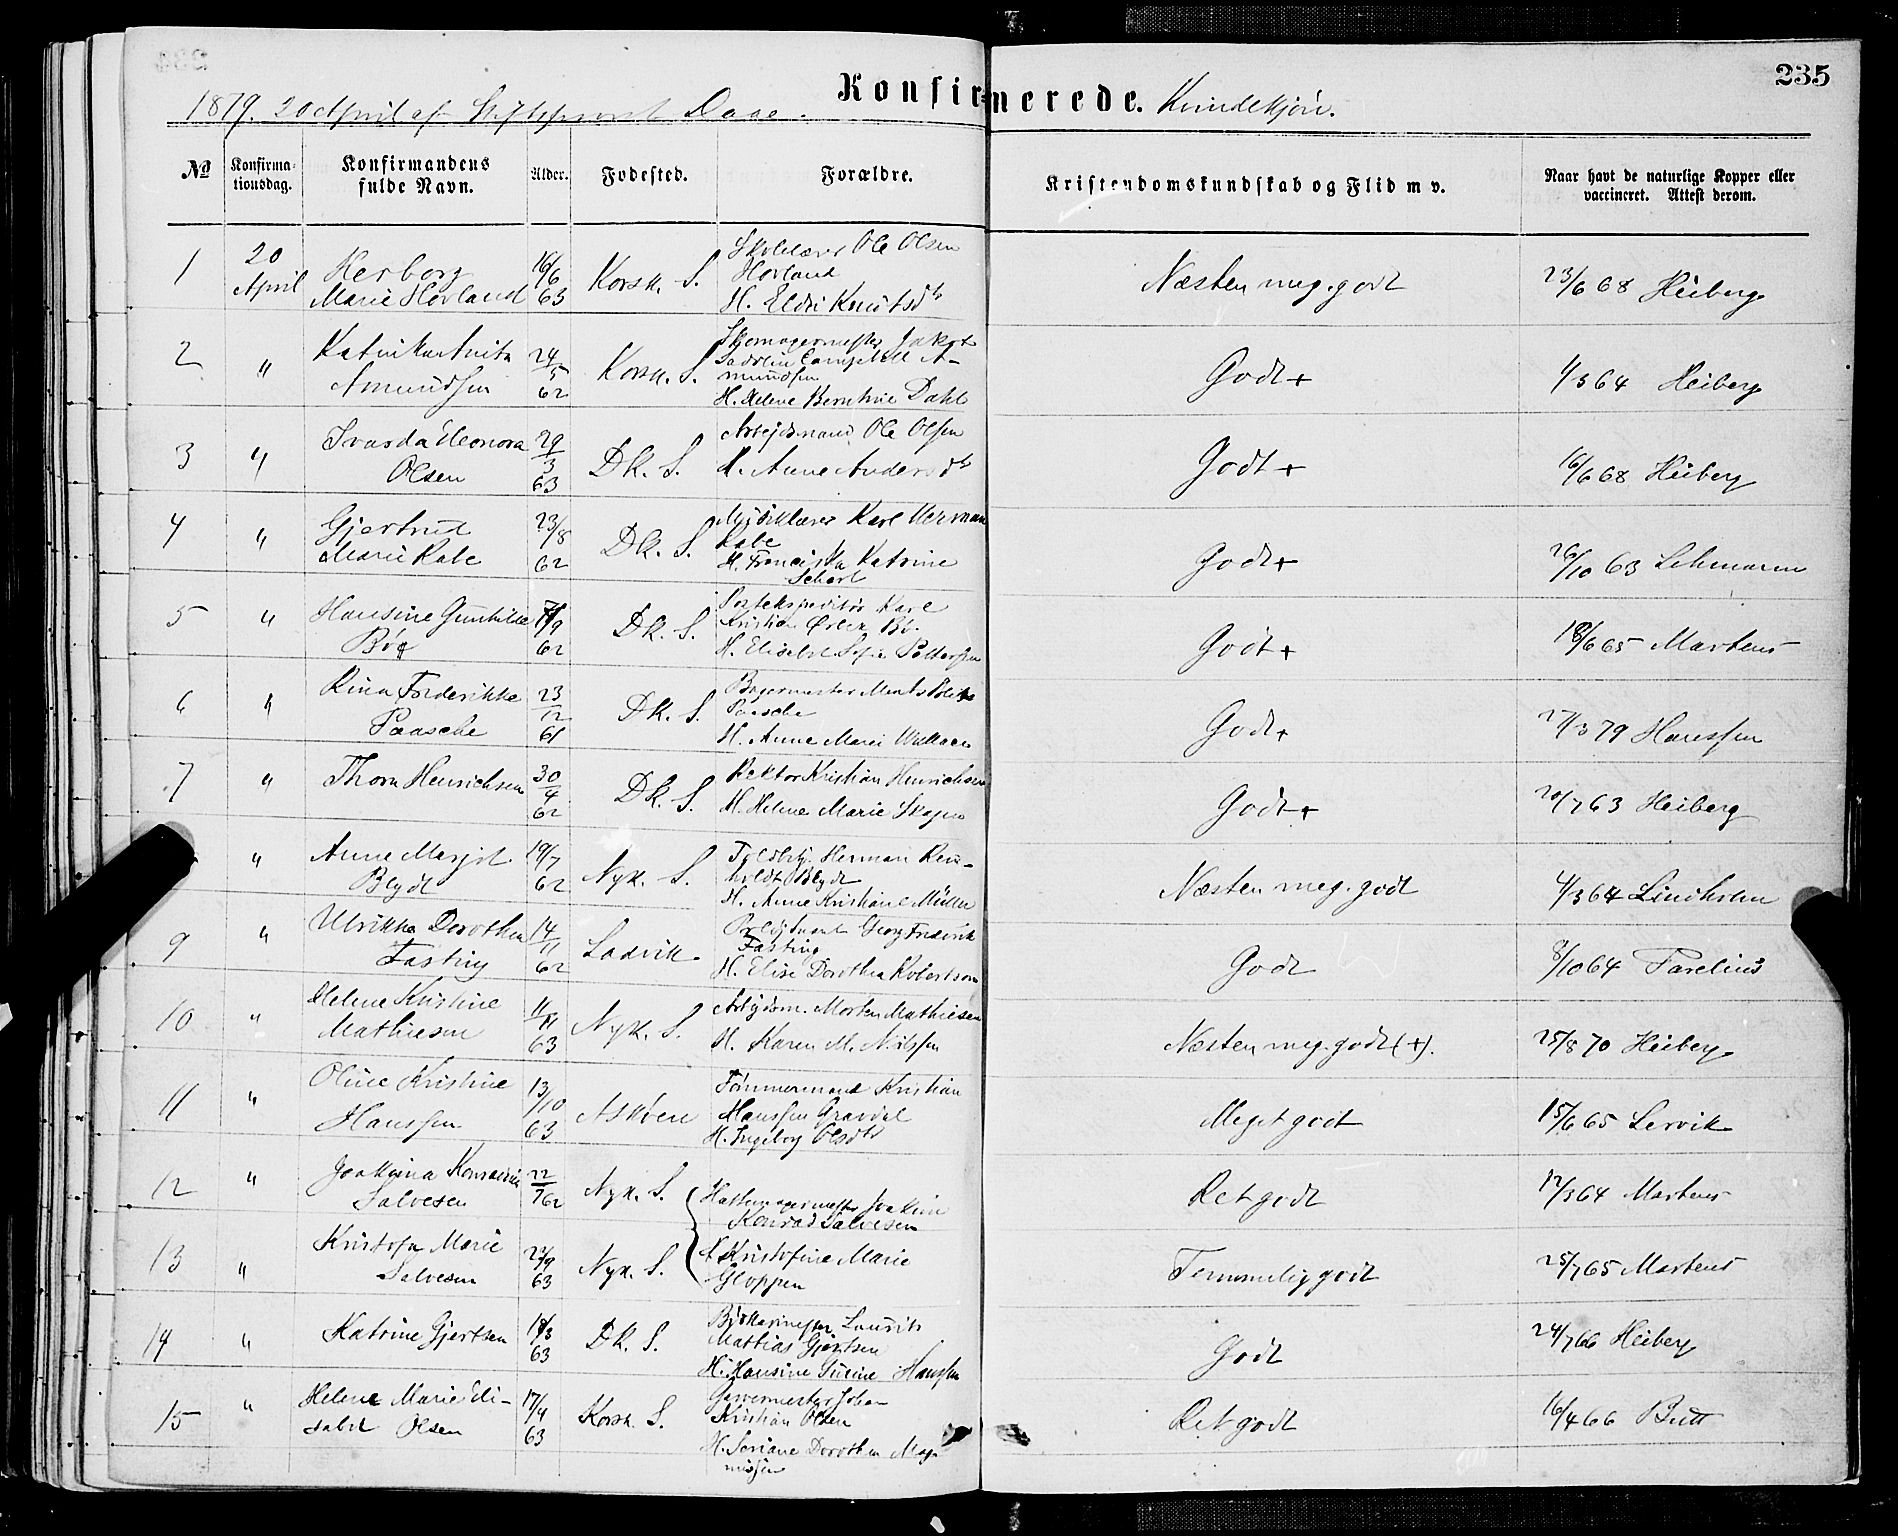 235
Konfirmerede. Kvindekjön.
1879. 20 April af Stiftsprovst Daae.
No
Konfirma-
tionsdag.
Konfirmandens
fulde Navn.
Alder.
Fødested.
Forældre.
Kristendomskundskab og Flid m v.
Naar havt de naturlige Kopper eller
vaccineret. Attest derom.
1 20 April
Herborg
Marie Hovland
16/6 63
Korsk. S.
Skolelærer Ole Olsen
Hovland
H. Eldri Knutsdtr
Næsten meg. godt
23/6 68 Heiberg
2 "
Katrikka Anita
Amundsen
24/5 62
Korsk. S.
Skomagermester Jakob
Campbell A-
mundsen
H. Helene Berntine Dahl
Godt +
1/3 64 Heiberg
3 "
Eleonora
Olsen
29/3 63
Dk. S.
Arbejdsmand Ole Olsen
H. Anne Andersdtr
Godt +
16/6 68 Heiberg
4 "
Gjertrud
Marie Rabe
23/8 62
Dk. S.
Musiklærer Karl Herman
Rabe
H. Franciska Katrine
Scherl
Godt +
26/10 63 Lehmann
5 "
Hansine Gunhilde
Bøg
/9 62
Dk. S.
Postekspeditør Karl
Kristian
H. Elisabet Sofie Pettersen
Godt +
18/6 65 Martens
6 "
Rina Frederikke
Paasche
23/12 61
Dk. S.
Bagermester
Paasche
H. Anne Marie Wallace
Godt +
27/3 79 Hanssen
7 "
Thora Henrichsen
30/4 62
Dk. S.
Rektor Kristian Henrichsen
H. Helene Marie Skagen
Godt +
20/7 63 Heiberg
"
Anne Margit
Blydt
19/7 62
Nyk. S.
Toldbtj. Herman Rein-
holdt Blydt
H. Anne Kristiane Müller
Næsten meg. godt
4/3 64 Lindholm
9 "
Ulrikke Dorothea
Fasting
14/11 62
Ladvik
Georg Fredrik
Fasting
H. Elise Dorothea Robertson
Godt
8/10 64 Farelius
10 "
Helene Kristine
Mathiesen
11/11 63
Nyk. S.
Arbejdsm. Morten Mathiesen
H. Karen M. Nilssen
Næsten meg. godt (+).
25/8 70 Heiberg
11 "
Oline Kristine
Hanssen
13/10 63
Askøen
Tømmermand Kristian
Hanssen Gravdal
H. Ingeborg Olsdtr
Meget godt
15/6 65 Lervik
12 "
Joakima Konradine
Salvesen
22/7 62
Nyk. S.
Hattemagermester Joakim
Konrad Salvesen
Ret godt
12/3 64 Martens
13 "
Kristofa Marie
Salvesen
23/9 63
Nyk. S.
H. Kristofine Marie
Gloppen
Temmelig godt
25/7 65 Martens
14 "
Katrine Gjertsen
18/3 63
Dk. S.
Laurits
Mathias Gjertsen
H. Hansine Hanssen
Godt
24/7 66 Heiberg
15 "
Helene Marie Eli-
sabet Olsen
17/4 63
Korsk. S.
Garvermester Johan
Kristian Olsen
H. Seriane Dorothea Mag-
nussen
Ret godt
16/4 66 Bull